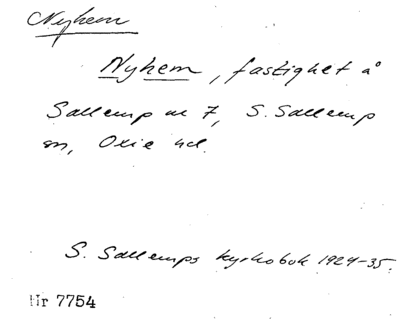 Nyhem
Nyhem, fastighet å
Sallerup nr 7, S. Sallerup
sn, Oxie hd.
S. Sallerups kyrkobok 1924-35.
Nr 7754